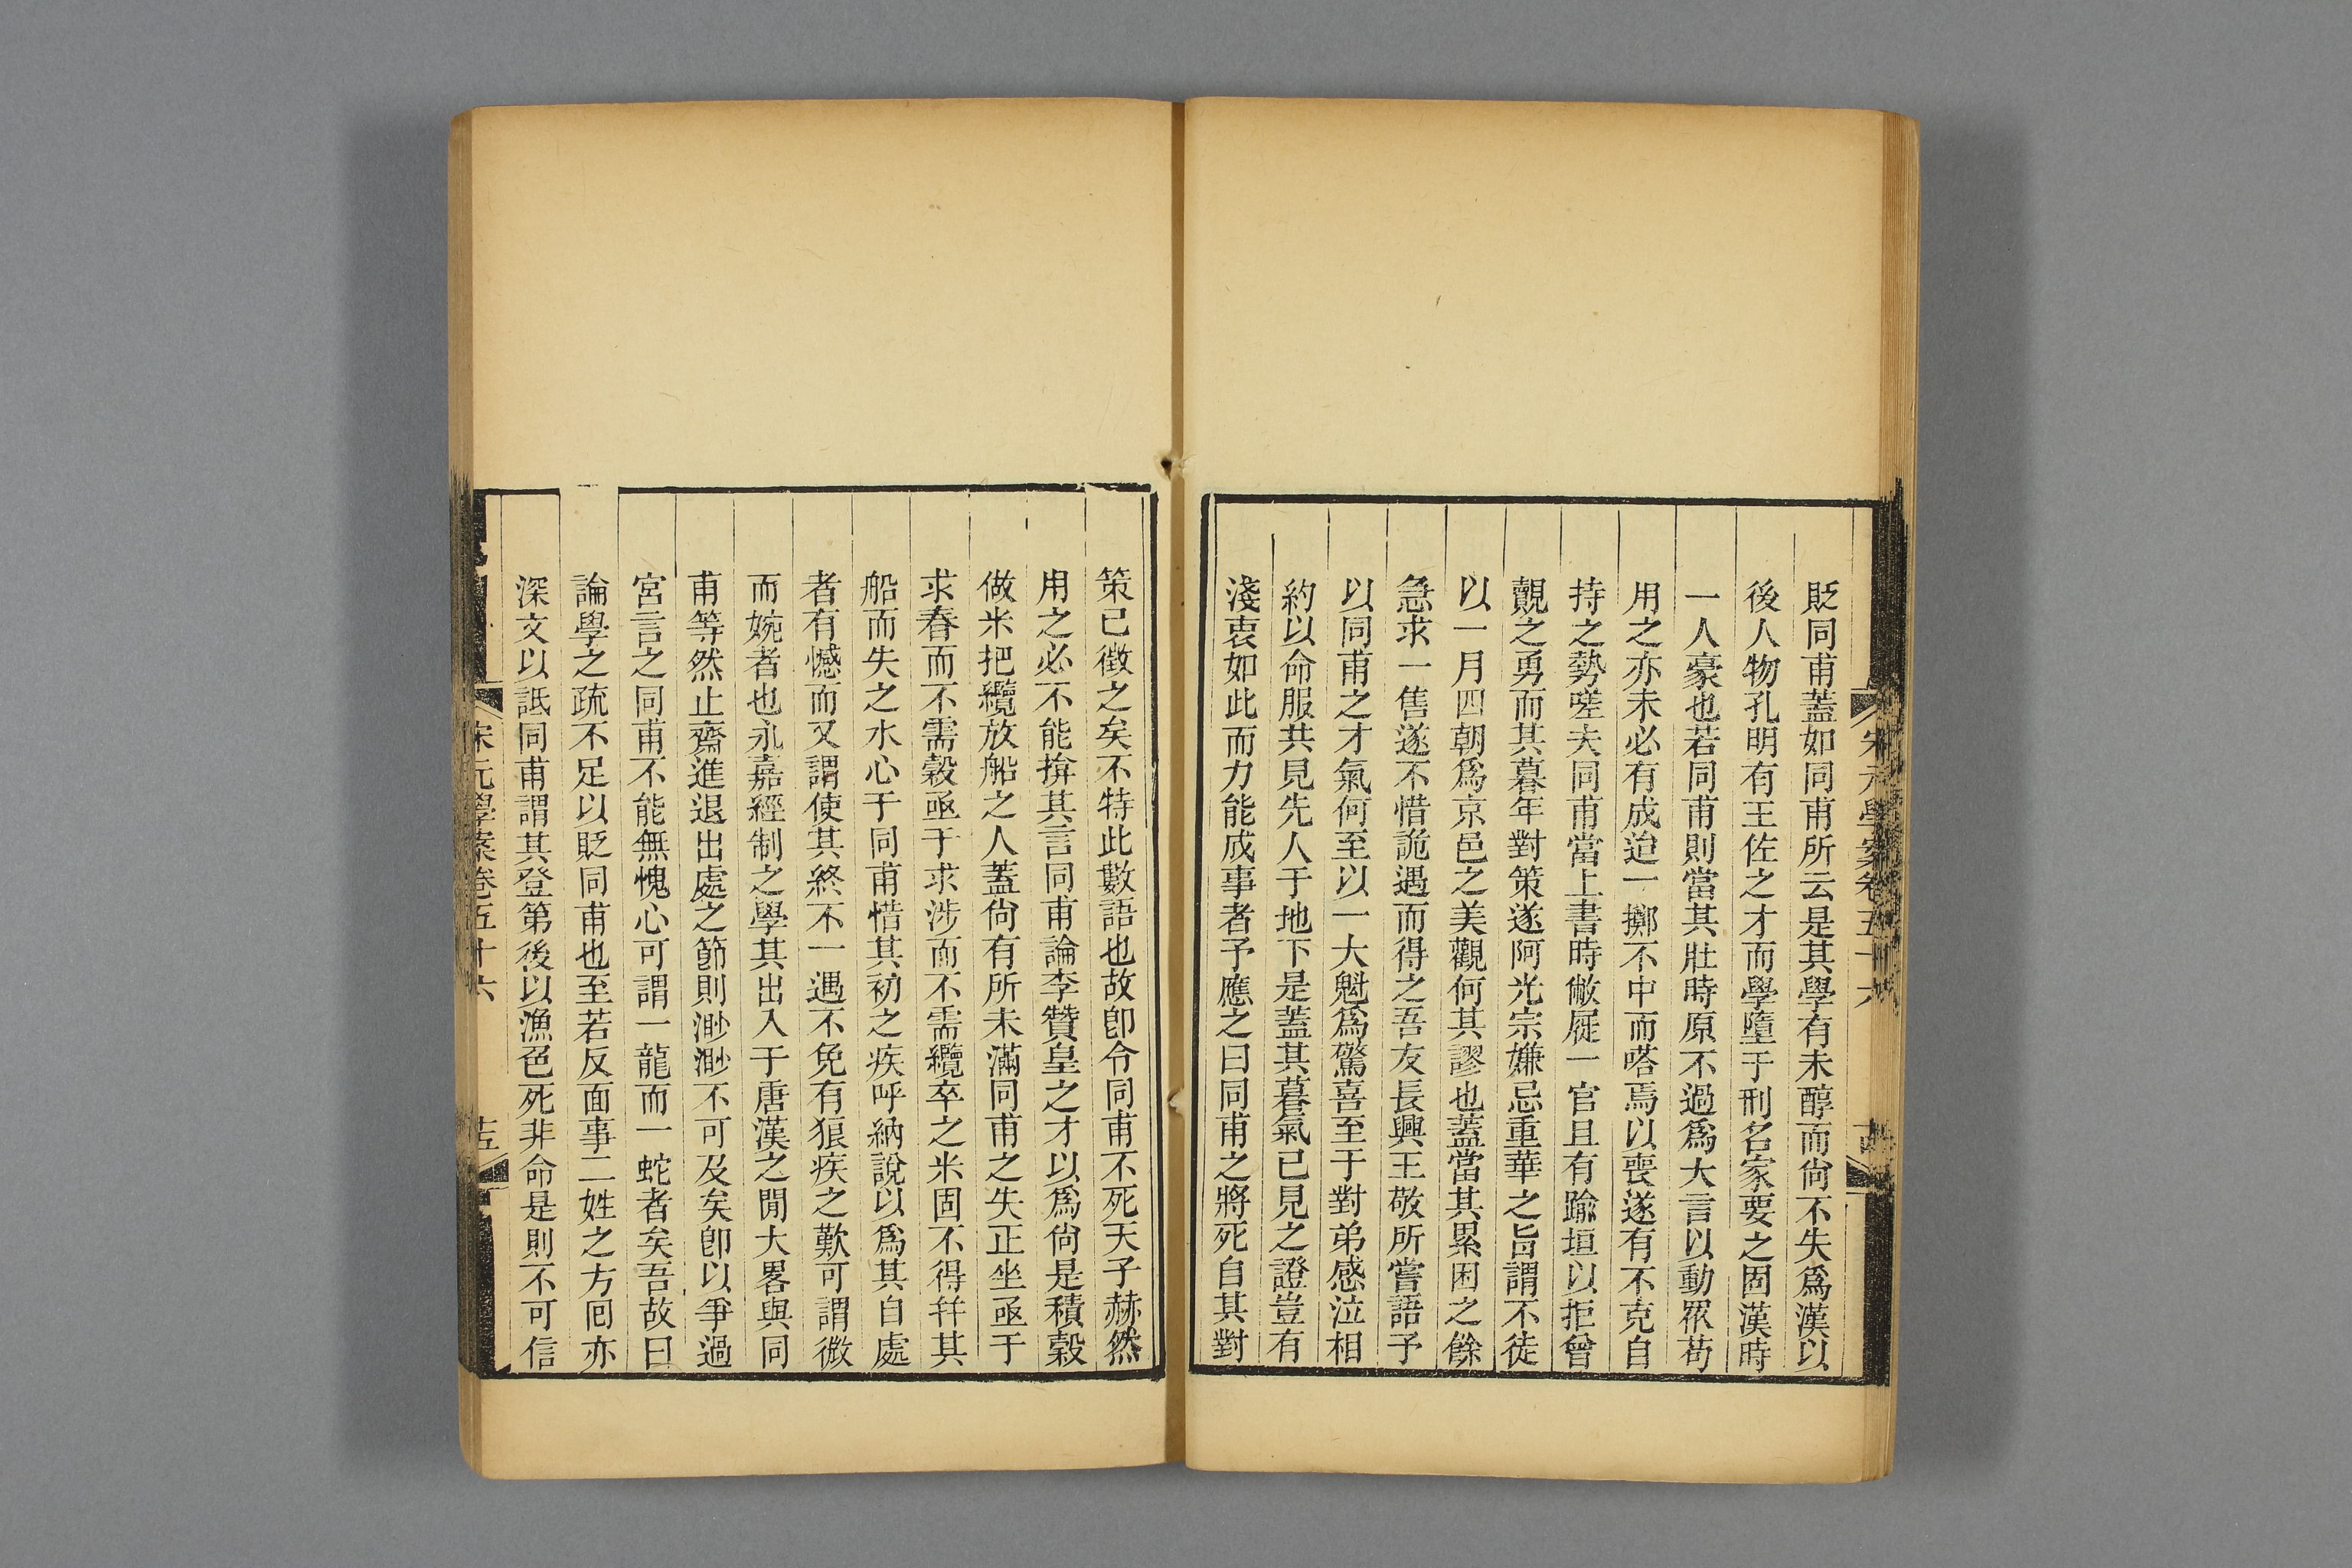 宋元學案卷五十六
貶同甫蓋如同甫所云是其學有未醇而尙不失爲漢以
後人物孔明有王佐之才而學墮于刑名家要之固漢時
一人豪也若同甫則當其壯時原不過爲大言以動眾苟
用之亦未必有成迨一擲不中而嗒焉以喪遂有不克自
持之勢嗟夫同甫當上書時敝屣一官且有踰垣以拒曾
覿之勇而其暮年對策遂阿光宗嫌忌重華之旨謂不徒
以一月四朝爲京邑之美觀何其謬也蓋當其累困之餘
急求一售遂不惜詭遇而得之吾友長興王敬所嘗語予
以同甫之才氣何至以一大魁爲驚喜至于對弟感泣相
約以命服共見先人于地下是蓋其暮氣已見之證豈有
淺衷如此而力能成事者予應之曰同甫之將死自其對
策已徵之矣不特此數語也故卽令同甫不死天子赫然
用之必不能揜其言同甫論李贊皇之才以爲尙是積穀
做米把纜放船之人蓋尙有所未滿同甫之失正坐亟于
求舂而不需穀亟于求涉而不需纜卒之米固不得幷其
船而失之水心于同甫惜其初之疾呼納說以爲其自處
者有憾而又謂使其終不一遇不免有狼疾之歎可謂微
而婉者也永嘉經制之學其出入于唐漢之閒大畧與同
甫等然止齋進退出處之節則渺渺不可及矣卽以爭過
宮言之同甫不能無愧心可謂一龍而一蛇者矣吾故曰
論學之疏不足以貶同甫也至若反面事二姓之方囘亦
深文以詆同甫謂其登第後以漁色死非命是則不可信
宋元學案卷五十六
十五